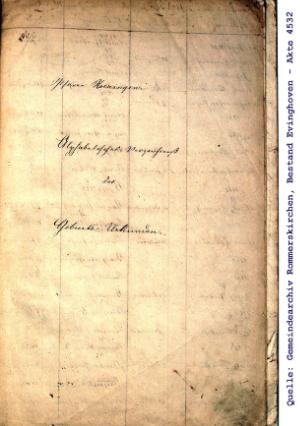 Pfarre
Alphabetisches Verzeichniß
der
Geburts-Urkunden.
Quelle: Gemeindearchiv Rommerskirchen, Bestand Evinghoven - Akte 4532